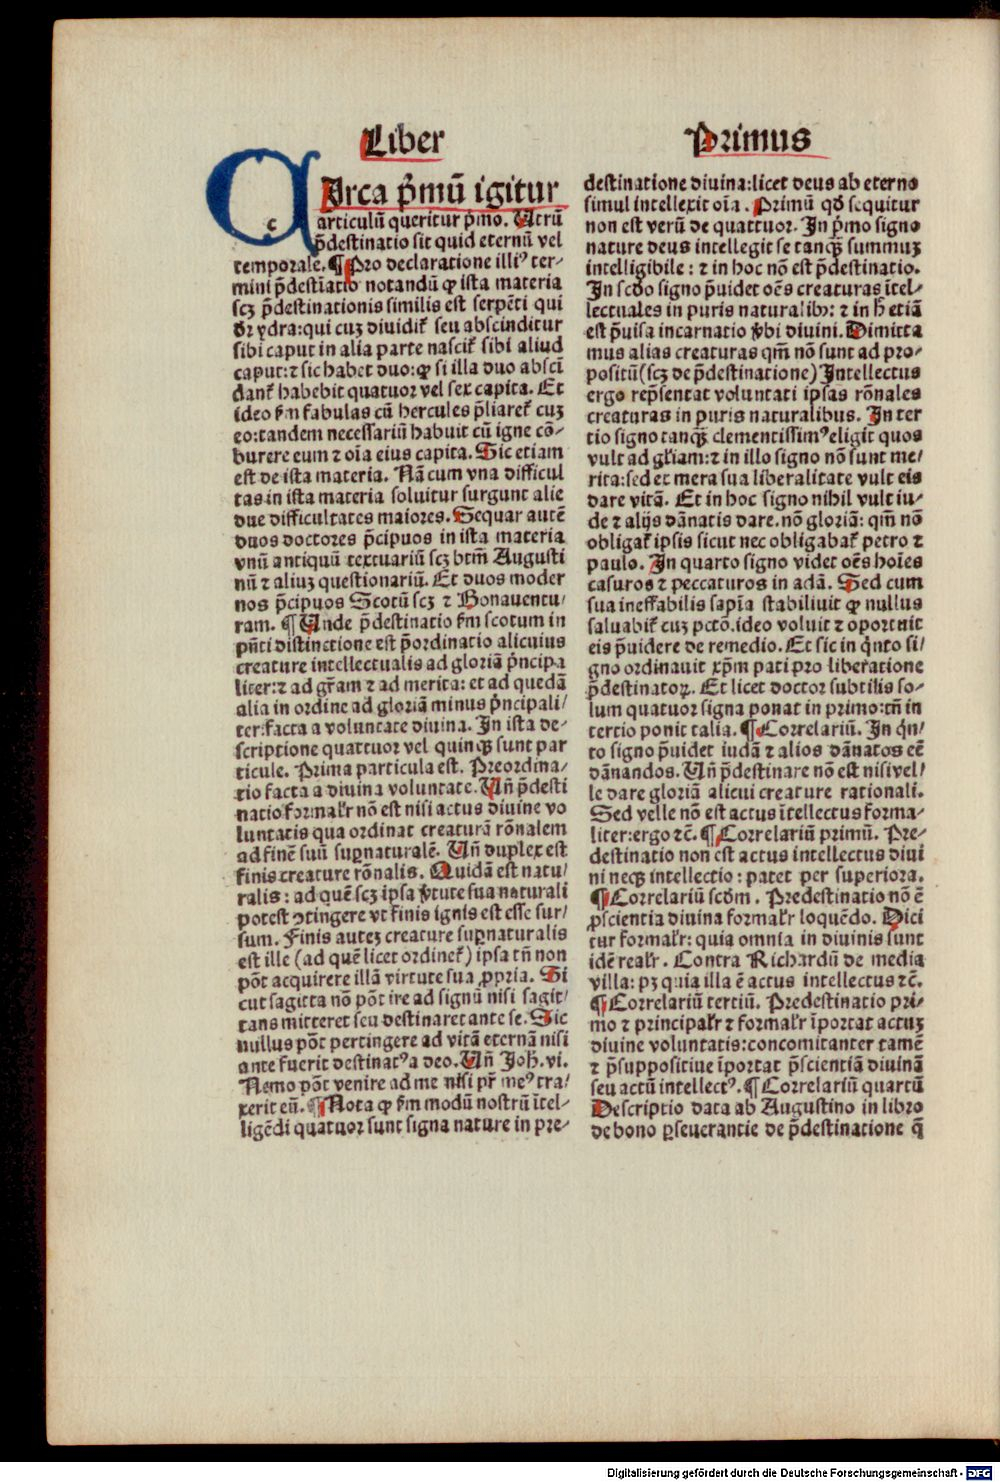 Liber
Primus
CIrca p̃mũ igitur
articulũ queritur p̃mo. Utrũ
p̃destinatio sit quid eternũ vel
temporale. ¶ Pro declaratione illiꝰ ter⸗
mini p̃destĩatio notandũ ꝙ ista materia
scꝫ p̃destinationis similis est serpẽti qui
dr̃ ydra: qui cuꝫ diuidit᷑ seu abscinditur
sibi caput in alia parte nascit᷑ sibi aliud
caput: ⁊ sic habet duo: ꝙ si illa duo abscĩ
dant᷑ habebit quatuor vel sex capita. Et
ideo ẜm fabulas cũ hercules p̃liaret᷑ cuꝫ
eo: tandem necessariũ habuit cũ igne cõ⸗
burere eum ⁊ oĩa eius capita. Sic etiam
est de ista materia. Nã cum vna difficul
tas in ista materia soluitur surgunt alie
due difficultates maiores. Sequar autẽ
duos doctores p̃cipuos in ista materia
vnũ antiquũ textuariũ scꝫ btm̃ Augusti
nũ ⁊ aliuꝫ questionariũ. Et duos moder
nos p̃cipuos Scotũ scꝫ ⁊ Bonauentu⸗
ram. ¶ Unde p̃destinatio ẜm scotum in
pñti distinctione est p̃ordinatio alicuius
creature intellectualis ad gloriã p̃ncipa
liter: ⁊ ad gr̃am ⁊ ad merita: et ad quedã
alia in ordine ad gloriã minus p̃ncipali⸗
ter: facta a voluntate diuina. In ista de⸗
scriptione quattuor vel quinqꝫ sunt par
ticule. Prima particula est. Preordina⸗
tio facta a diuina voluntate. Uñ p̃desti
natio formalr̃ nõ est nisi actus diuine vo
luntatis qua ordinat creaturã rõnalem
ad finẽ suũ suꝑnaturalẽ. Uñ duplex est
finis creature rõnalis. Quidã est natu⸗
ralis: ad quẽ scꝫ ipsa v̑tute sua naturali
potest ꝯtingere vt finis ignis est esse sur⸗
sum. Finis auteꝫ creature suꝑnaturalis
est ille (ad quẽ licet ordinet᷑) ipsa tñ non
põt acquirere illã virtute sua ꝓpria. Si
cut sagitta nõ põt ire ad signũ nisi sagit⸗
tans mitteret seu destinaret ante se. Sic
nullus põt pertingere ad vitã eternã nisi
ante fuerit destinatꝰ a deo. Uñ Joh̃. vi.
Nemo põt venire ad me nisi pr̃ meꝰ tra⸗
xerit eũ. ¶ Nota ꝙ ẜm modũ nostrũ ĩtel⸗
ligẽdi quatuor sunt signa nature in pre⸗
destinatione diuina: licet deus ab eterno
simul intellexit oĩa. Primũ qd̃ sequitur
non est verũ de quattuor. In p̃mo signo
nature deus intellegit se tanqꝫ̃ summuꝫ
intelligibile: ⁊ in hoc nõ est p̃destinatio.
In scd̃o signo p̃uidet oẽs creaturas ĩtel⸗
lectuales in puris naturalibꝫ: ⁊ in h̃ etiã
est p̃uisa incarnatio v̑bi diuini. Dimitta
mus alias creaturas qm̃ nõ sunt ad pro⸗
positũ (scꝫ de p̃destinatione) Intellectus
ergo rep̃sentat voluntati ipsas rõnales
creaturas in puris naturalibus. In ter
tio signo tanqꝫ̃ clementissimꝰ eligit quos
vult ad gl̃iam: ⁊ in illo signo nõ sunt me⸗
rita: sed et mera sua liberalitate vult eis
dare vitã. Et in hoc signo nihil vult iu⸗
de ⁊ alijs dãnatis dare. nõ gloriã: qm̃ nõ
obligat᷑ ipsis sicut nec obligabat᷑ petro ⁊
paulo. In quarto signo videt oẽs hoĩes
casuros ⁊ peccaturos in adã. Sed cum
sua ineffabilis sapĩa stabiliuit ꝙ nullus
saluabit᷑ cuꝫ pctõ. ideo voluit ⁊ oportuit
eis p̃uidere de remedio. Et sic in q̃nto si⸗
gno ordinauit xp̃m pati pro liberatione
p̃destinatoꝝ. Et licet doctor subtilis so⸗
lum quatuor signa ponat in primo: tñ in
tertio ponit talia. ¶ Correlariũ. In q̃n⸗
to signo p̃uidet iudã ⁊ alios dãnatos eẽ
dãnandos. Uñ p̃destinare nõ est nisi vel⸗
le dare gloriã alicui creature rationali.
Sed velle nõ est actus ĩtellectus forma⸗
liter: ergo ⁊c̃. ¶ Correlariũ primũ. Pre⸗
destinatio non est actus intellectus diui
ni neqꝫ intellectio: patet per superiora.
¶ Correlariũ scd̃m. Predestinatio nõ ẽ
p̱scientia diuina formalr̃ loquẽdo. Dici
tur formalr̃: quia omnia in diuinis sunt
idẽ realr̃. Contra Richardũ de media
villa: pꝫ quia illa ẽ actus intellectus ⁊c̃.
¶ Correlariũ tertiũ. Predestinatio pri⸗
mo ⁊ principalr̃ ⁊ formalr̃ ĩportat actuꝫ
diuine voluntatis: concomitanter tamẽ
⁊ p̃suppositiue ĩportat p̃scientiã diuinã
seu actũ intellectꝰ. ¶ Correlariũ quartũ
Descriptio data ab Augustino in libro
de bono ꝑseuerantie de p̃destinatione q̃
Digitalisierung gefördert durch die Deutsche Forschungsgemeinschaft - DFG